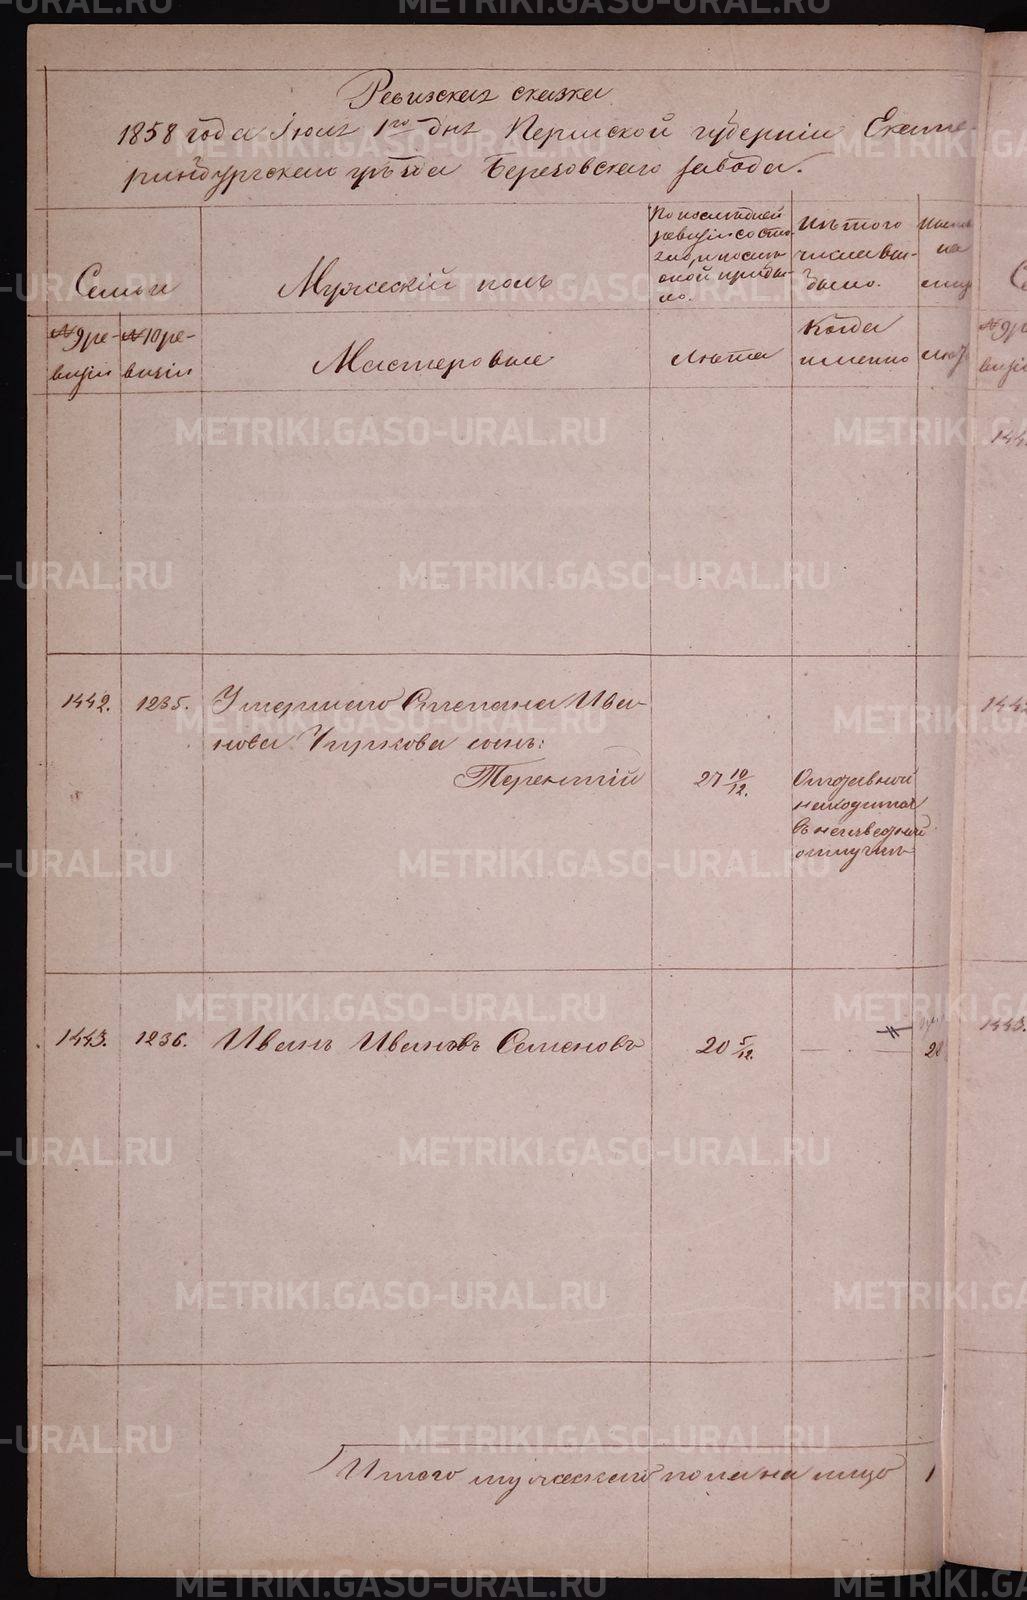 Ревизская сказка
1858 года Июля 1го дня Пермской губерніи Екате-
ринбургскаго уѣзда Березовскаго завода.
Семьи
Мужескій полъ
По последней
ревизіи состо-
яло, и после
оной прибы-
ло.
Изъ того
числа вы-
было.
на
№ 9 ре-
визіи
№ 10 ре-
визіи
Мастеровые
Лѣта
Когда
именно
1442.
1235.
Умершаго Степана Ива-
нова Чиркова сынъ:
Терентій
27 10/12.
Отставной
находится
въ неизвестной
отлучкѣ
1443.
1236.
Иванъ Ивановъ Семеновъ
20 5/12.
28
Итого мужескаго пола на лицо
1
METRIKI.GASO-URAL.RU